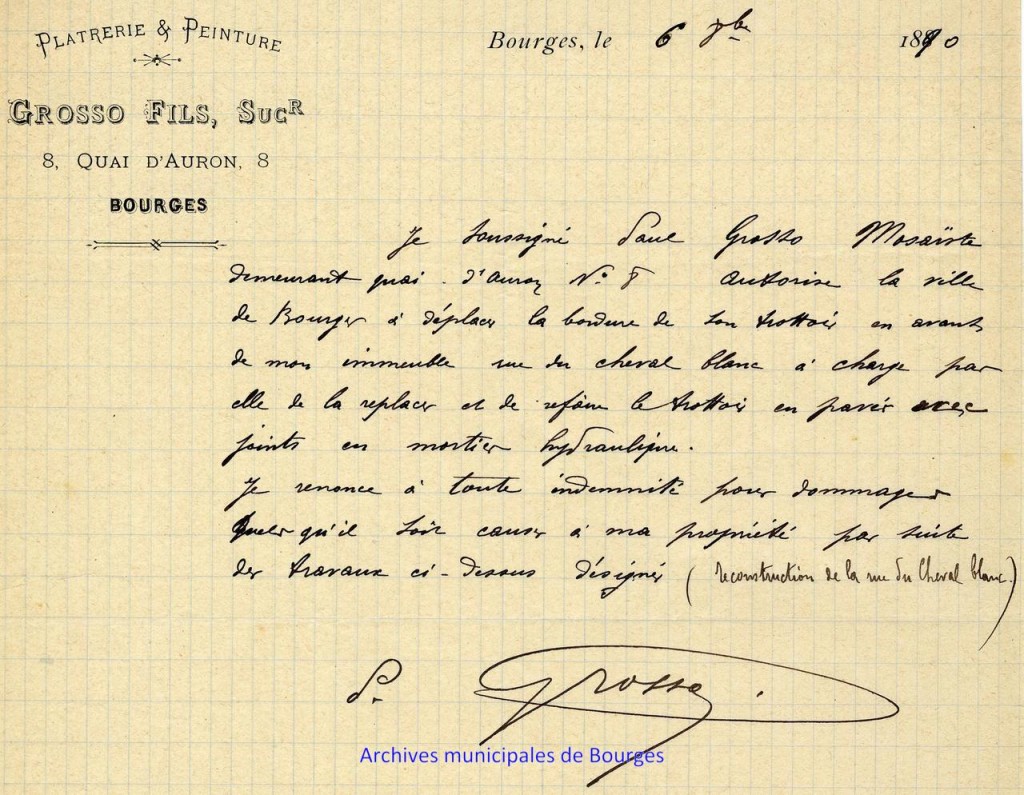 PLATRERIE & PEINTURE
GROSSO FILS, SUCR
8, QUAI D'AURON, 8
BOURGES
Bourges, le 6 7bre 1890
Je soussigné Paul Grosso Mosaïste
demeurant quai d'Auron No 8 autorise la ville
de Bourges à déplacer la bordure de son trottoir en avant
de mon immeuble rue du cheval blanc à charge par
elle de la replacer et de refaire le trottoir en pavés avec
joints en mortier hydraulique.
Je renonce à toute indemnité pour dommages
quels qu'il soit causés à ma propriété par suite
des travaux ci-dessus désignés (reconstruction de la rue du Cheval blanc.)
P. Grosso
Archives municipales de Bourges